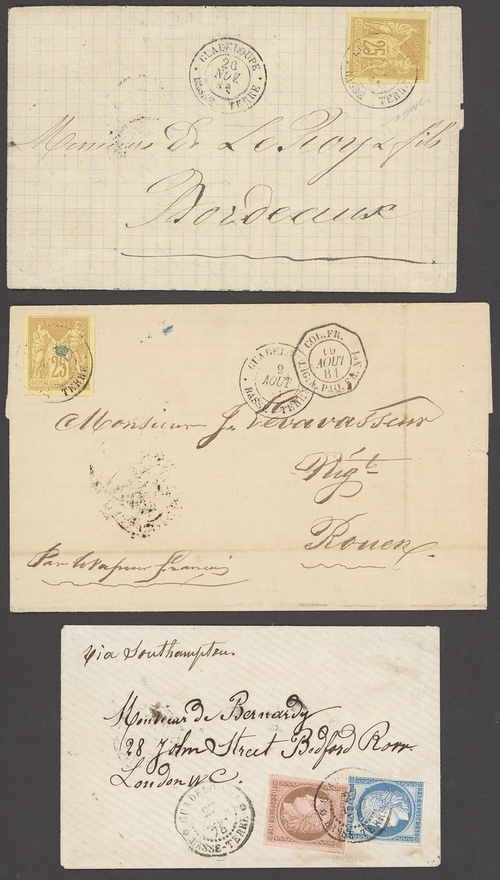 GUADELOUPE
20
NOV
BASSE - TERRE
25
BASSE TERRE
Messieurs De Le Roy & fils
Bordeaux
POSTES
25
TERRE
GUADEL
9
AOUT
BASSE TERRE
COL. FR.
10
AOUT
81
LIG. A. PAQ. FR.
Monsieur J. Levavasseur
Négt
Rouen
Par Vapeur français
via Southampton
Monsieur de Bernardy
28 John Street Bedford Row
London W.C.
27
78
BASSE-TERRE
BASSE-TERRE